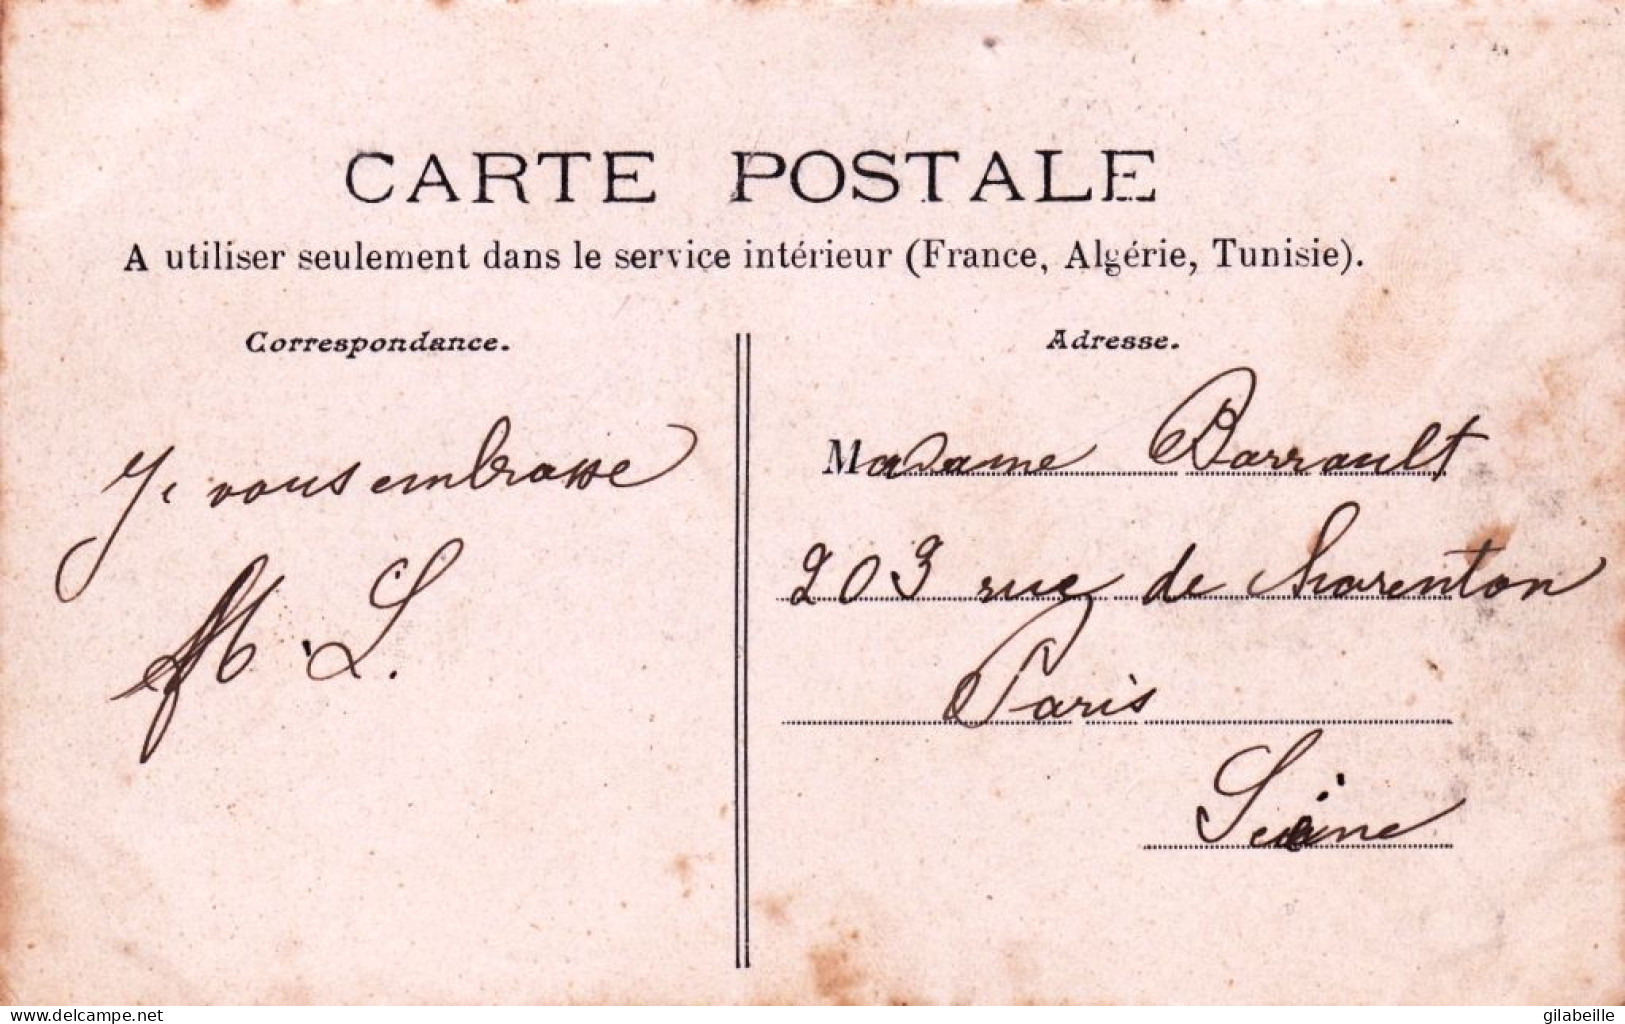 CARTE POSTALE
A utiliser seulement dans le service intérieur (France, Algérie, Tunisie).
Correspondance.
Je vous embrasse
M. L.
Adresse.
Madame Barrault
203 rue de Charenton
Paris
Seine
www.delcampe.net
gilabeille